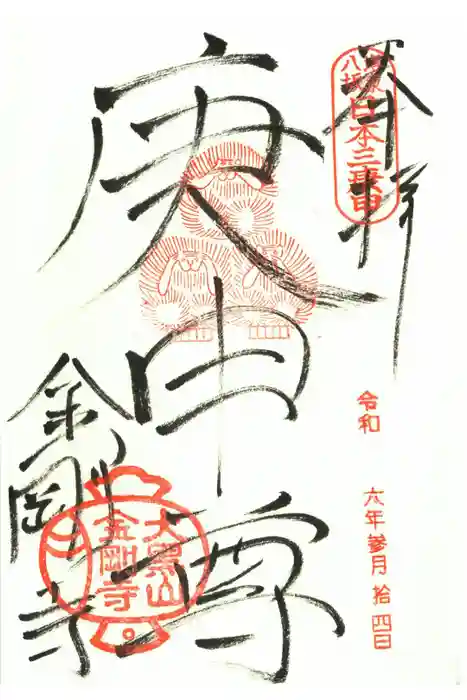 奉拝
東京
八坂
日本三庚申
令和
六年参月拾四日
庚申尊
金剛寺
大黒山
金剛寺